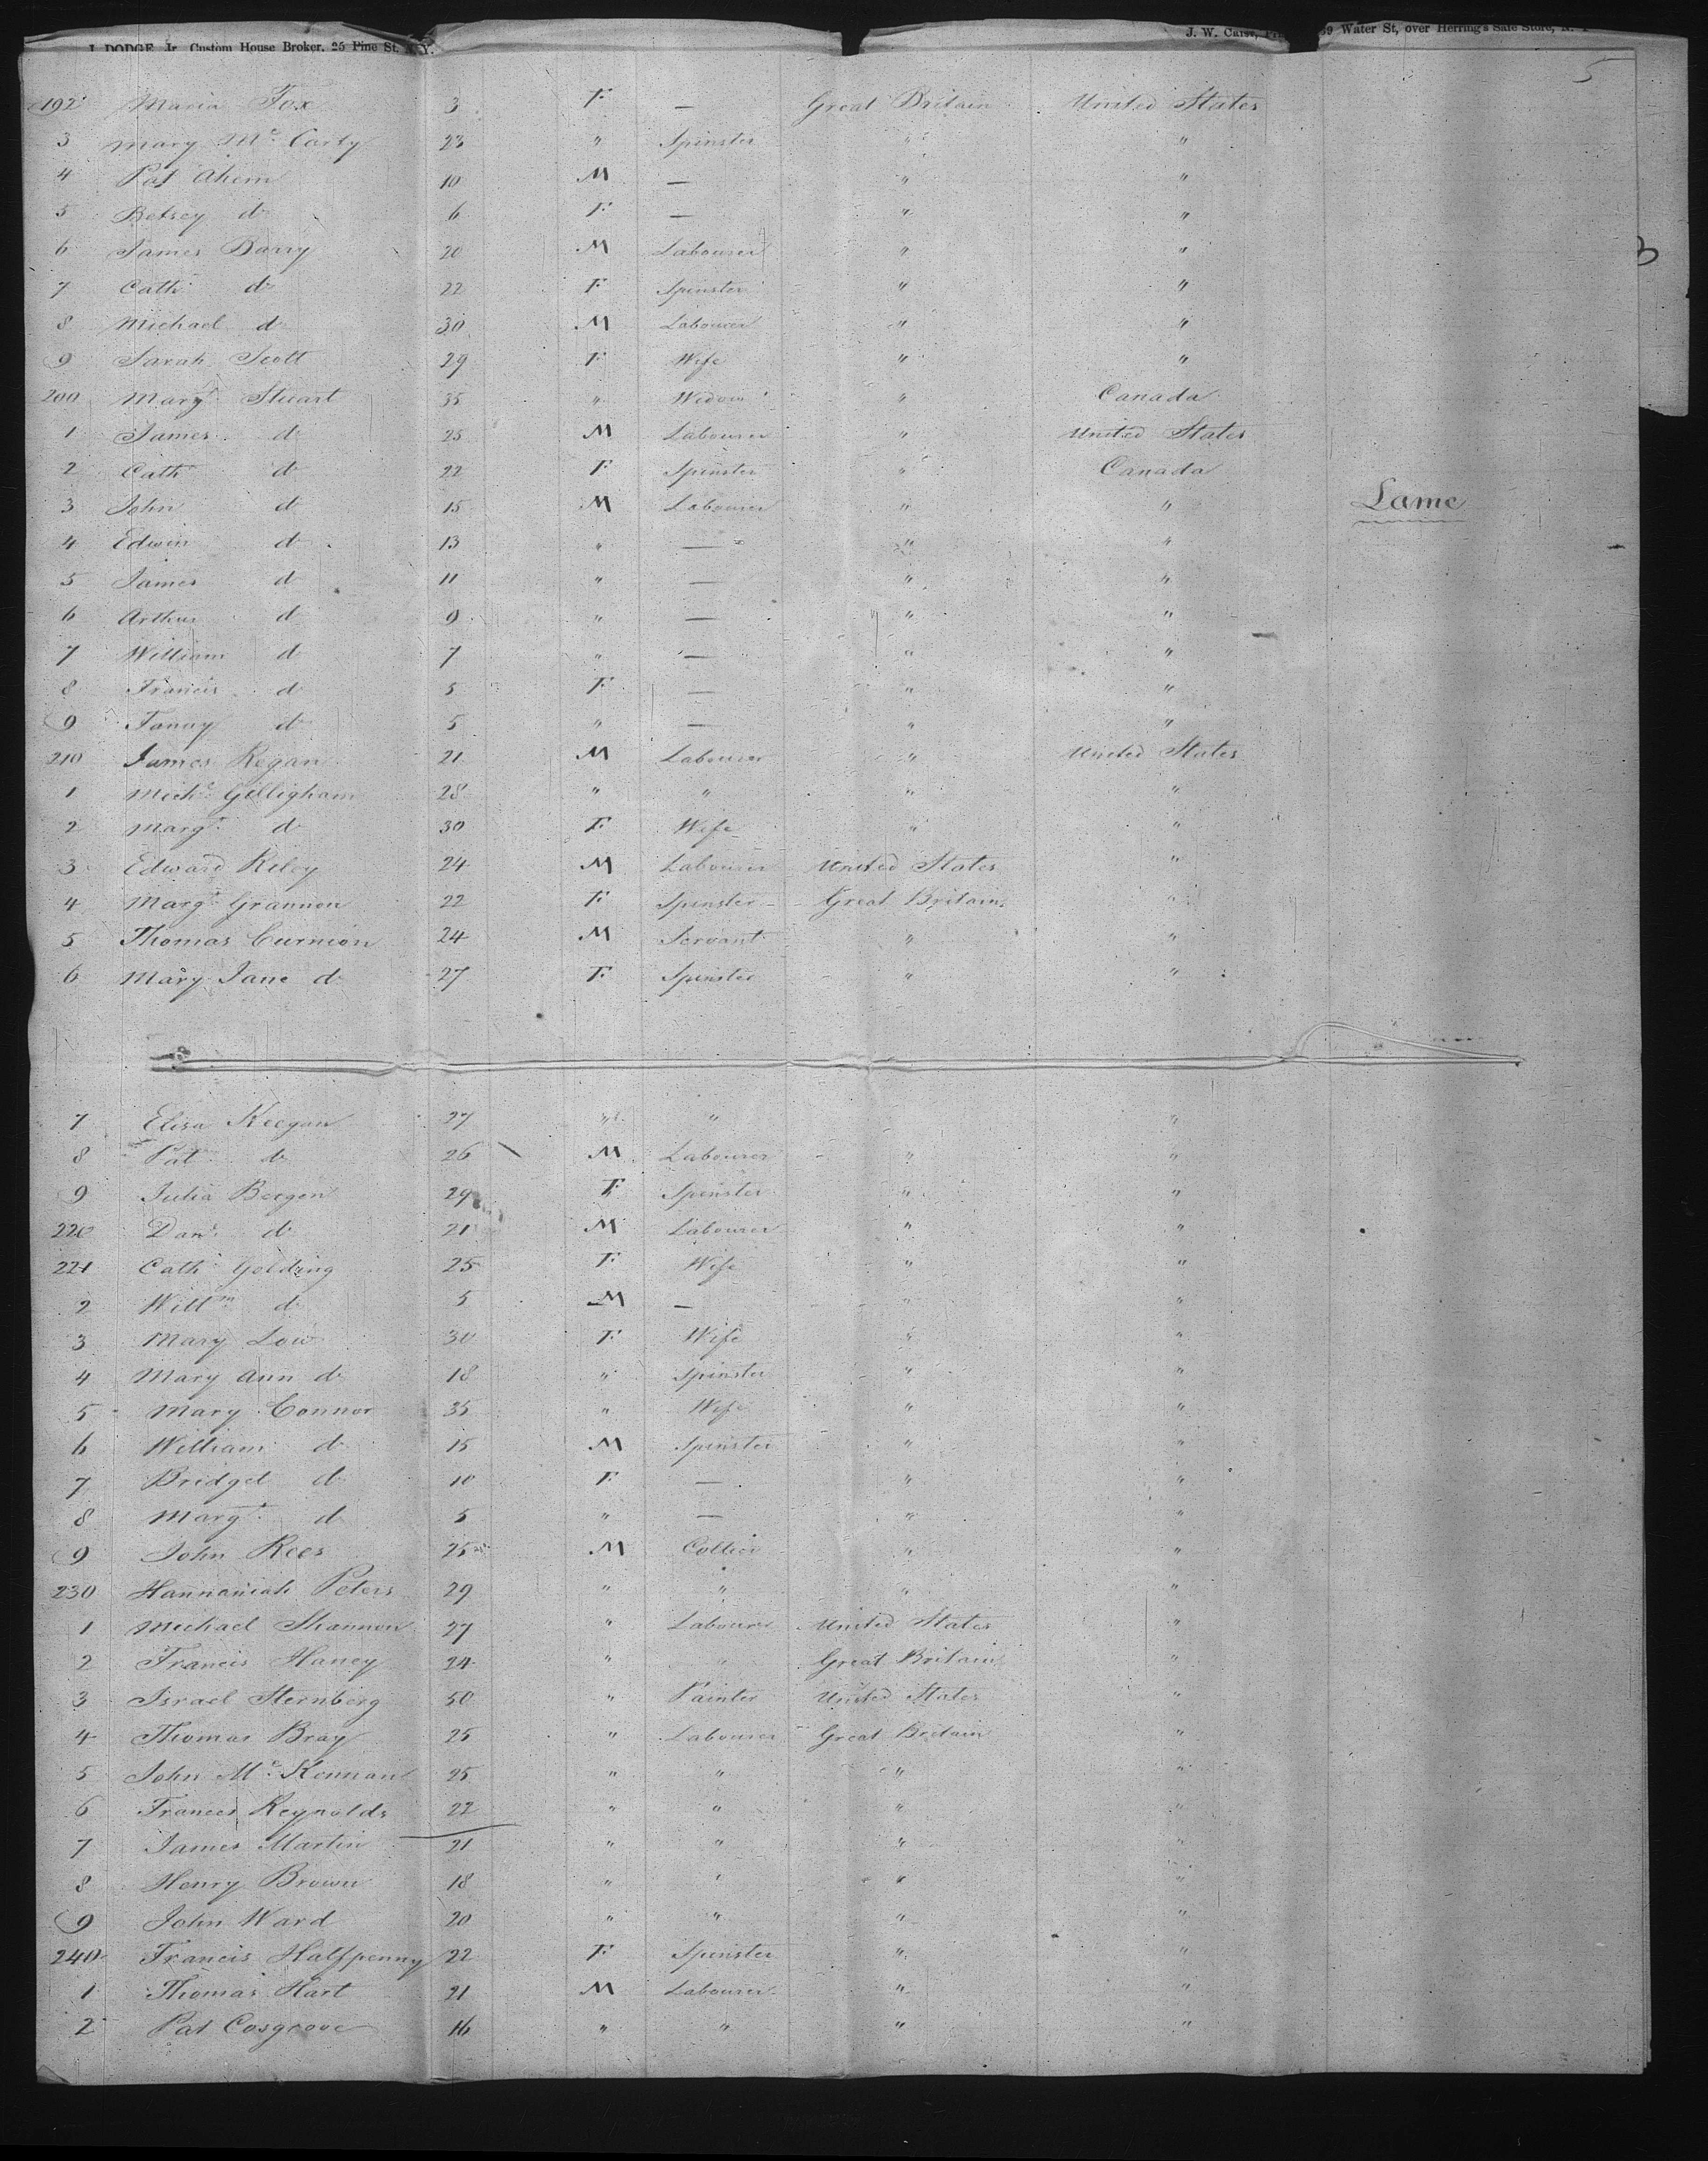 J. DODGE, Jr. Custom House Broker, 25 Pine St. N.Y. J. W. Carse, 59 Water St, over Herring's Safe Store, N. Y
5
192 Maria Fox 3 F — Great Britain United States
3 Mary Mc Carty 23 " Spinster " "
4 Pat Ahern 10 M — " "
5 Betsey do 6 F — " "
6 James Barry 20 M Labourer " "
7 Cath do 22 F Spinster " "
8 Michael do 30 M Labourer " "
9 Sarah Scott 29 F Wife " "
200 Margt Stuart 35 " Widow " Canada
1 James do 25 M Labourer " United States
2 Cath do 22 F Spinster " Canada
3 John do 15 M Labourer " " Lame
4 Edwin do 13 " — " "
5 James do 11 " — " "
6 Arthur do 9 " — " "
7 William do 7 " — " "
8 Francis do 5 F — " "
9 Fanny do 5 " — " "
210 James Regan 21 M Labourer " United States
1 Michl Gilligham 28 " " " "
2 Margt do 30 F Wife " "
3 Edward Riley 24 M Labourer United States "
4 Margt Grannon 22 F Spinster Great Britain "
5 Thomas Curnion 24 M Servant " "
6 Mary Jane do 27 F Spinster " "
7 Eliza Keegan 27 " " "
8 Pat do 26 M Labourer " "
9 Julia Bergen 29 F Spinster " "
220 Danl do 21 M Labourer " "
221 Cath Golding 25 F Wife " "
2 Willm do 5 M — "
3 Mary Low 30 F Wife " "
4 Mary Ann do 18 " Spinster " "
5 Mary Connor 35 " Wife " "
6 William do 15 M Spinster " "
7 Bridget do 10 F — " "
8 Margt do 5 " — " "
9 John Rees 25 M Collier " "
230 Hannaniah Peters 29 " " " "
1 Michael Shannon 27 " Labourer United States "
2 Francis Haney 24 " " Great Britain "
3 Israel Sternberg 50 " Painter United States "
4 Thomas Bray 25 " Labourer Great Britain "
5 John Mc Kennan 25 " " " "
6 Frances Reynolds 22 " " " "
7 James Martin 21 " " " "
8 Henry Brown 18 " " " "
9 John Ward 20 " " " "
240 Francis Halfpenny 22 F Spinster " "
1 Thomas Hart 21 M Labourer " "
2 Pat Cosgrove 16 " " " "